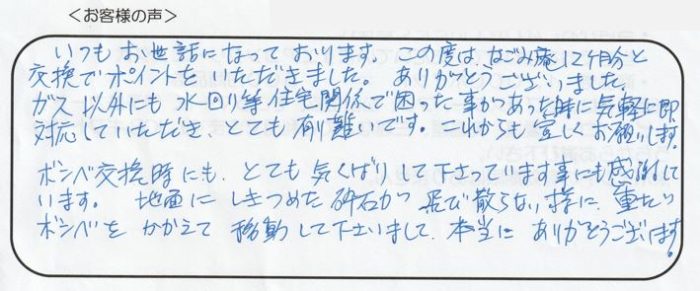 ＜お客様の声＞
いつもお世話になっております。この度は、なごみ庵12ヶ月分と
交換でポイントをいただきました。ありがとうございました。
ガス以外にも水回り等住宅関係で困った事があった時に気軽に即
対応していただき、とても有り難いです。これからも宜しくお願いします。
ボンベ交換時にも、とても気くばりして下さっています事にも感謝して
います。地面にしきつめた砕石が飛び散らない様に、重たい
ボンベをかかえて移動して下さいまして、本当にありがとうございます。